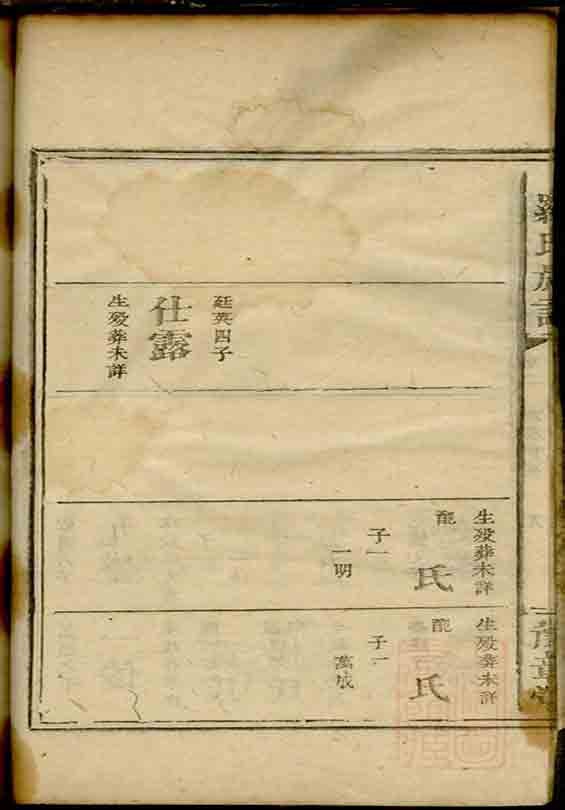 羅氏族譜
豫章堂
廷英四子
仕露
生殁葬未詳
生殁葬未詳
配
氏
子一
一明
生殁葬未詳
配
氏
子一
萬成